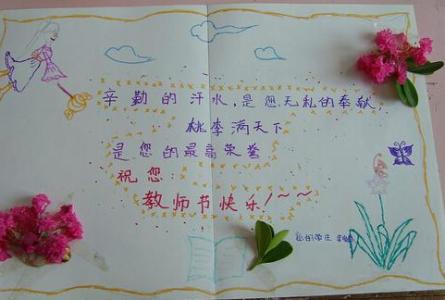 辛勤的汗水,是您无私的奉献
桃李满天下
是您的最高荣誉
祝您:
教师节快乐!~~
您的学生